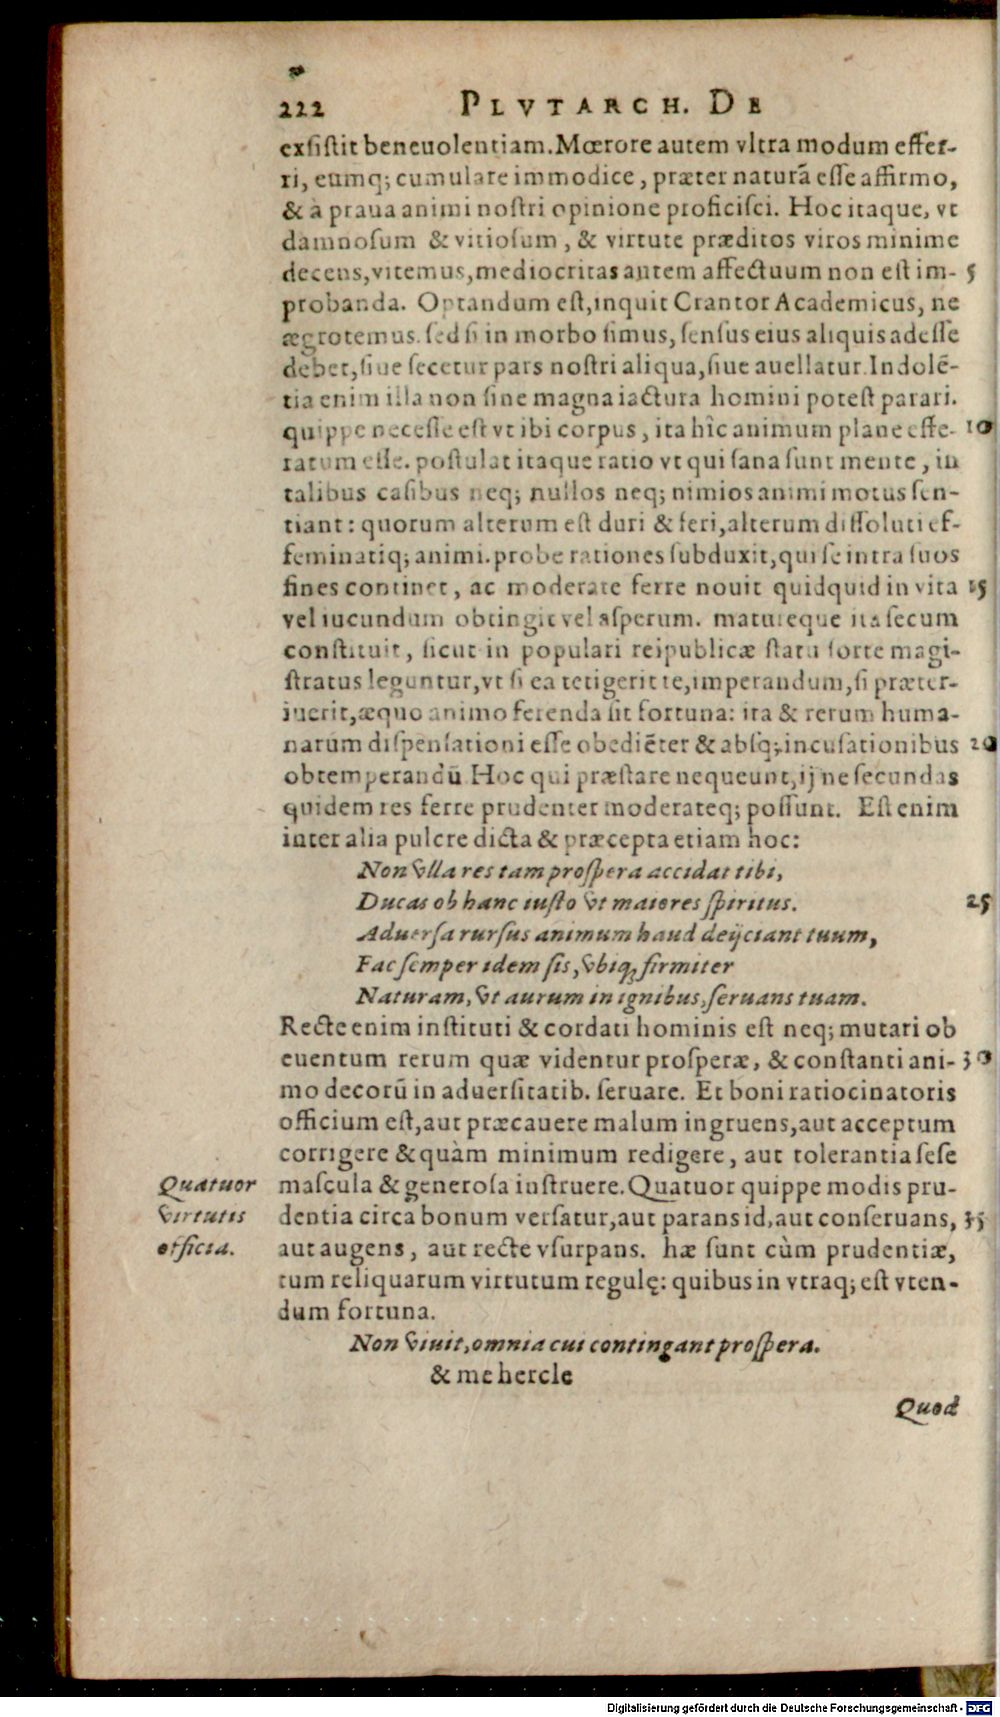 222 PLVTARCH. DE
exſiſtit beneuolentiam. Mœrore autem vltra modum effer-
ri, eumq; cumulare immodice, præter naturã eſſe affirmo,
& à praua animi noſtri opinione proficiſci. Hoc itaque, vt
damnoſum & vitioſum, & virtute præditos viros minime
decens, vitemus, mediocritas autem affectuum non eſt im- 5
probanda. Optandum eſt, inquit Crantor Academicus, ne
ægrotemus. ſed ſi in morbo ſimus, ſenſus eius aliquis adeſſe
debet, ſiue ſecetur pars noſtri aliqua, ſiue auellatur. Indolẽ-
tia enim illa non ſine magna iactura homini poteſt parari.
quippe neceſſe eſt vt ibi corpus, ita hîc animum plane effe- 10
ratum eſſe. poſtulat itaque ratio vt qui ſana ſunt mente, in
talibus caſibus neq; nullos neq; nimios animi motus ſen-
tiant: quorum alterum eſt duri & feri, alterum diſſoluti ef-
feminatiq; animi. probe rationes ſubduxit, qui ſe intra ſuos
fines continet, ac moderate ferre nouit quidquid in vita 15
vel iucundum obtingit vel aſperum. matureque ita ſecum
conſtituit, ſicut in populari reipublicæ ſtatu ſorte magi-
ſtratus leguntur, vt ſi ea tetigerit te, imperandum, ſi præter-
iuerit, æquo animo ferenda ſit fortuna: ita & rerum huma-
narum diſpenſationi eſſe obediẽter & abſq; incuſationibus 20
obtemperandũ Hoc qui præſtare nequeunt, ij ne ſecundas
quidem res ferre prudenter moderateq; poſſunt. Eſt enim
inter alia pulcre dicta & præcepta etiam hoc:
Non vlla res tam proſpera accidat tibi,
Ducas ob hanc iuſto vt maiores ſpiritus. 25
Aduerſa rurſus animum haud deijciant tuum,
Fac ſemper idem ſis, vbiq; firmiter
Naturam, vt aurum in ignibus, ſeruans tuam.
Recte enim inſtituti & cordati hominis eſt neq; mutari ob
euentum rerum quæ videntur proſperæ, & conſtanti ani- 30
mo decorũ in aduerſitatib. ſeruare. Et boni ratiocinatoris
officium eſt, aut præcauere malum ingruens, aut acceptum
corrigere & quàm minimum redigere, aut tolerantia ſeſe
Quatuor virtutis officia.
maſcula & generoſa inſtruere. Quatuor quippe modis pru-
dentia circa bonum verſatur, aut parans id, aut conſeruans, 35
aut augens, aut recte vſurpans. hæ ſunt cùm prudentiæ,
tum reliquarum virtutum regulę: quibus in vtraq; eſt vten-
dum fortuna.
Non viuit, omnia cui contingant proſpera.
& me hercle
Quod
Digitalisierung gefördert durch die Deutsche Forschungsgemeinschaft - DFG